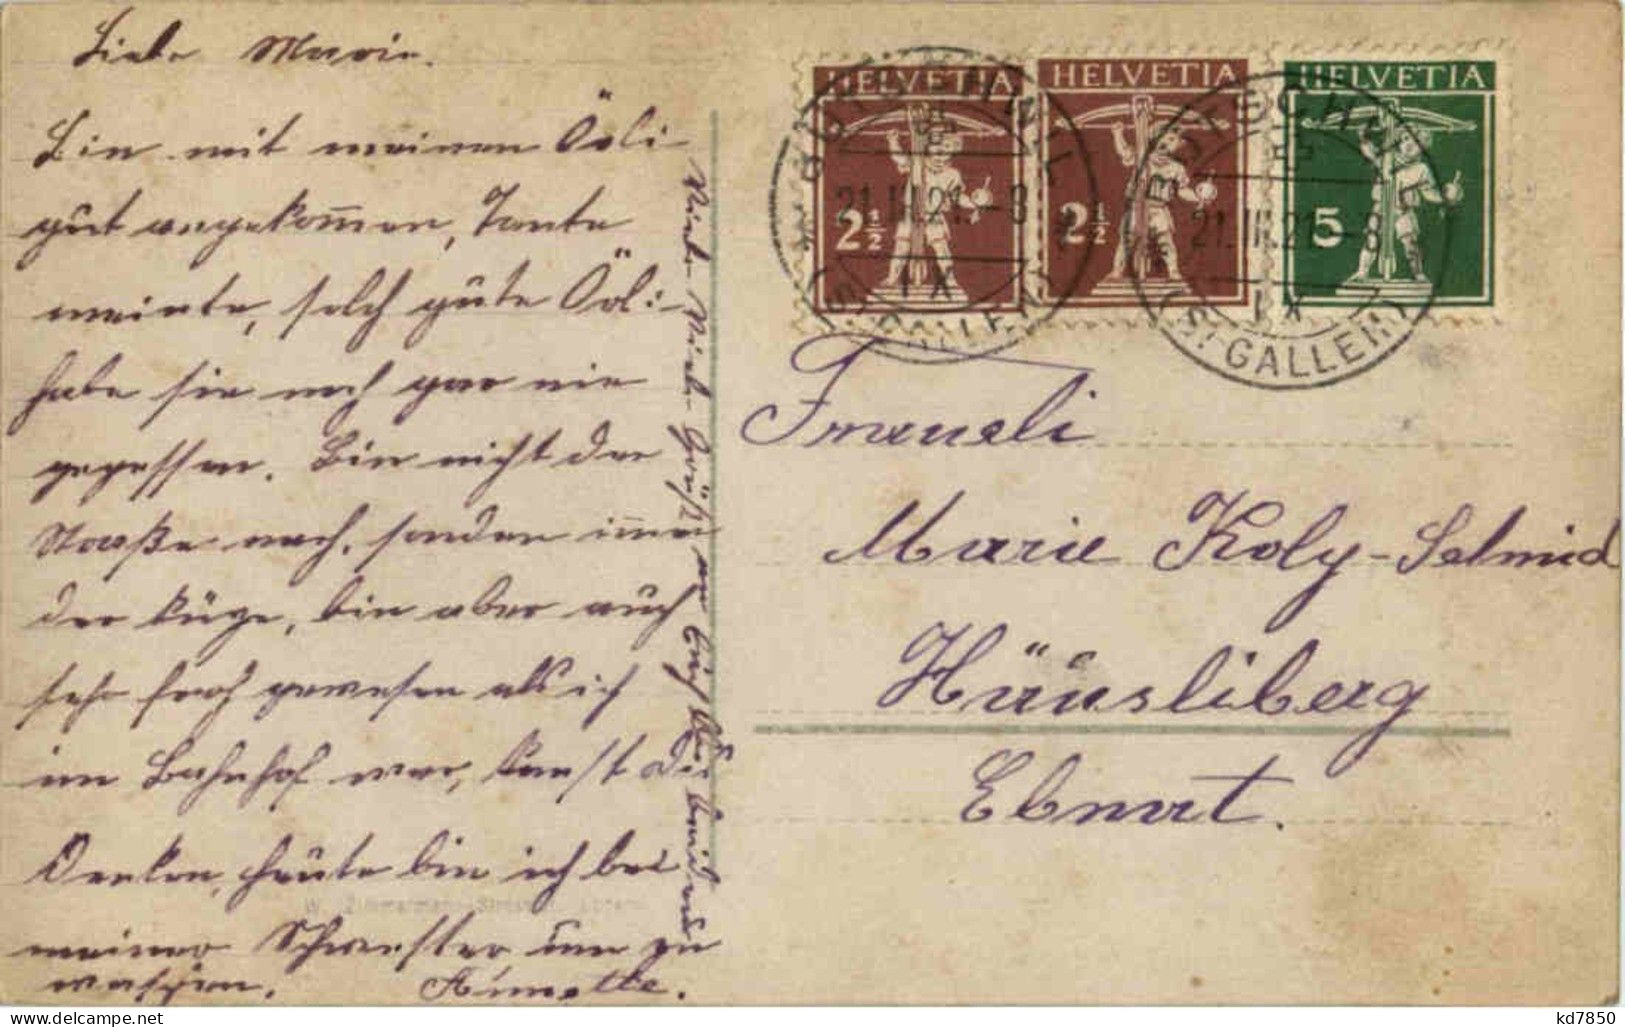 Liebe Marie.
Bin mit meinen Öoli
gut angekommen, Tante
meinte, solch gute Öoli
habe sie noch gar nie
gegessen. Bin nicht der
Straße nach, sondern immer
der Züge, bin aber auch
sehr froh gewesen als ich
im Bahnhof war, kanst Du
Denken, heute bin ich bei
meiner Schwester um zu
waschen. Annette.
Viele Viele Grüße an Euch
HELVETIA HELVETIA HELVETIA
2½ 2½ 5
21.III.21.-8
IX
(ST. GALLEN)
21.III.21.-8
IX
(ST. GALLEN)
Fraueli
Marie Koly-Schmid
Häusliberg
Ebnat.
kd7850